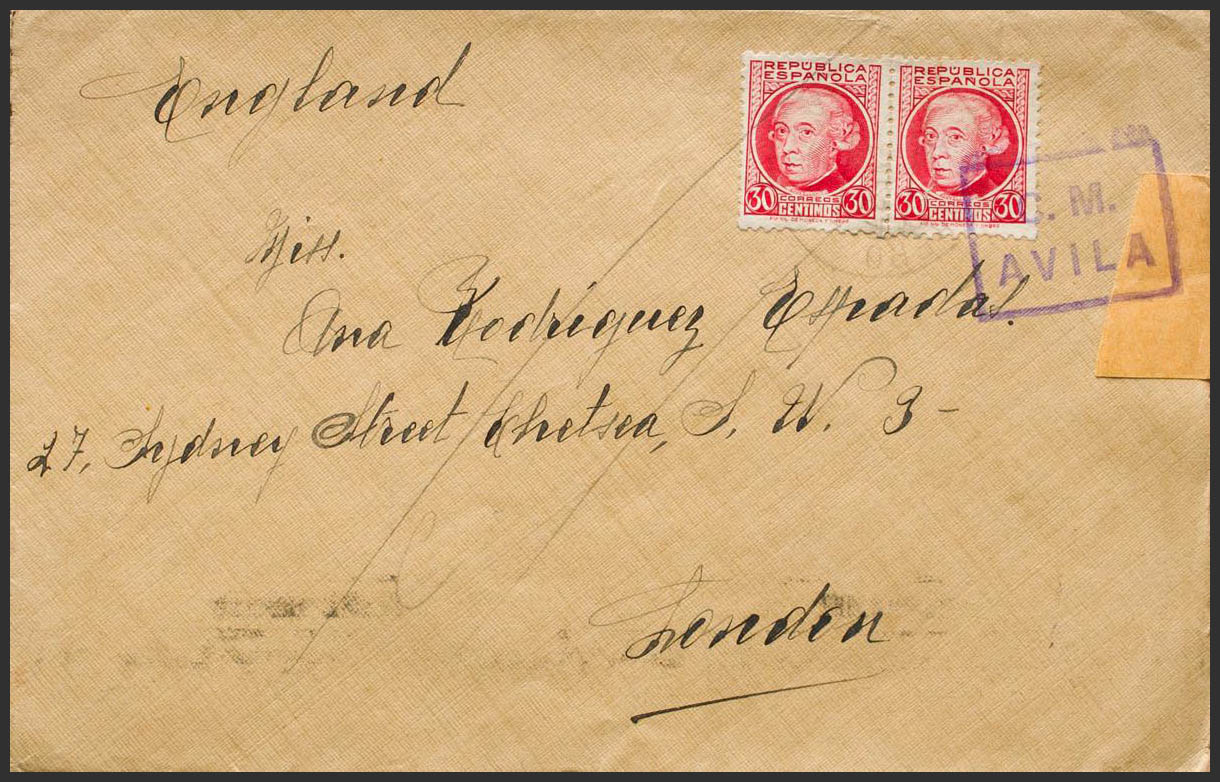 England
REPÚBLICA ESPAÑOLA
30 CORREOS CENTIMOS 30
REPÚBLICA ESPAÑOLA
30 CORREOS CENTIMOS 30
C. M.
AVILA
Miss.
Ana Rodriguez Espadas.
27, Sydney Street Chelsea, S. W. 3-
London